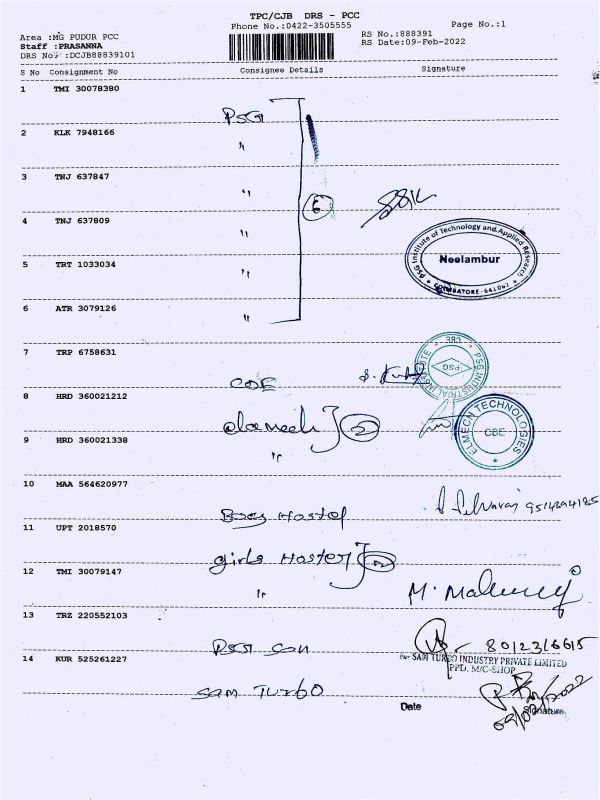 TPC/CJB DRS - PCC
Phone No.:0422-3505555
Page No.:1
Area :MG PUDUR PCC
Staff :PRASANNA
DRS No :DCJB88839101
RS No.:888391
RS Date:09-Feb-2022
S No Consignment No Consignee Details Signature
1 TMI 30078380
PSG
2 KLK 7948166
"
3 TNJ 637847
"
6
4 TNJ 637809
"
PSG Institute of Technology and Applied Research
Neelambur
COIMBATORE-641062
5 TRT 1033034
"
6 ATR 3079126
"
7 TRP 6758631
COE
PSG INDUSTRIAL INSTITUTE
CBE
PSG
8 HRD 360021212
2
ELMECH TECHNOLOGIES
CBE
9 HRD 360021338
"
10 MAA 564620977
Boys Hostel
11 UPT 2018570
girls Hostel 2
12 TMI 30079147
"
13 TRZ 220552103
PSG
8012316615
For SAM TURBO INDUSTRY PRIVATE LIMITED
PPD. M/C-SHOP
14 KUR 525261227
Sam Turbo
Date
Signature